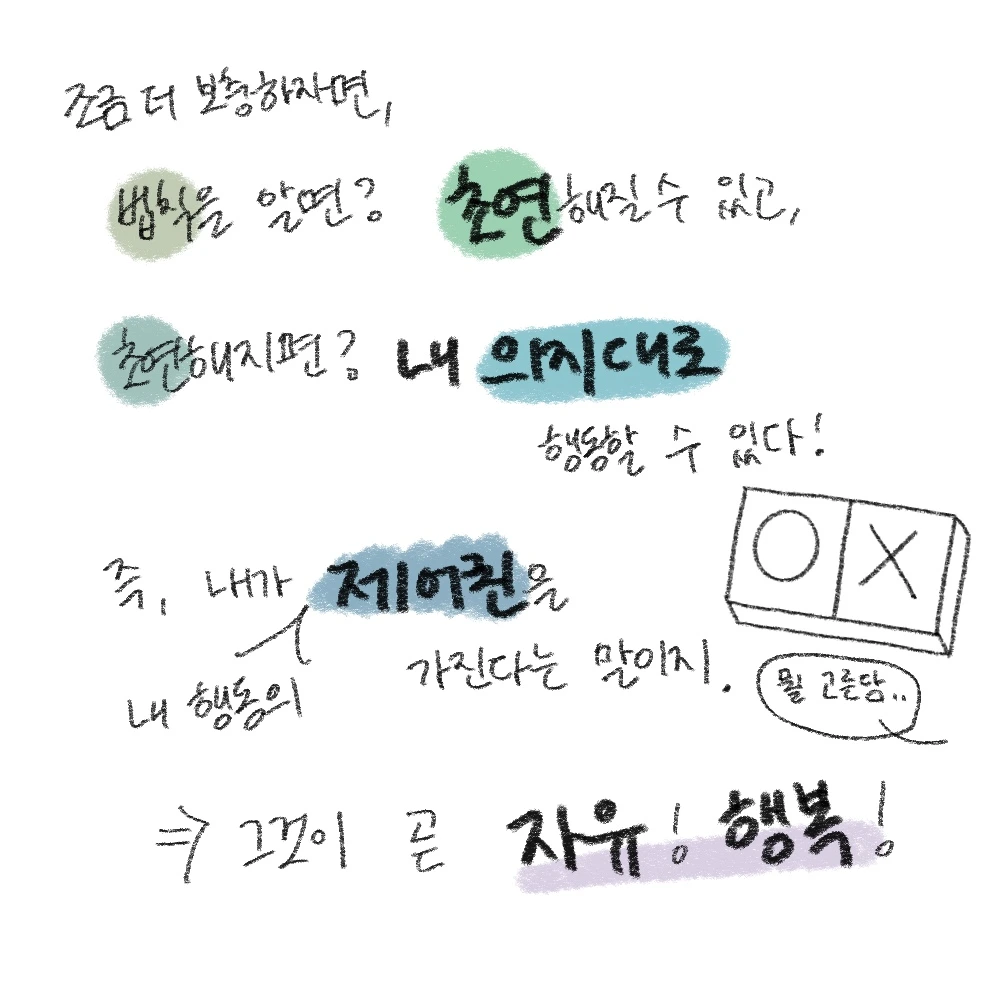 조금 더 보충하자면,
법칙을 알면? 초연해질 수 있고,
초연해지면? 내 의지대로
행동할 수 있다!
즉, 내가 제어권을
내 행동의
가진다는 말이지.
O X
뭘 고른담..
⇒ 그것이 곧 자유! 행복!